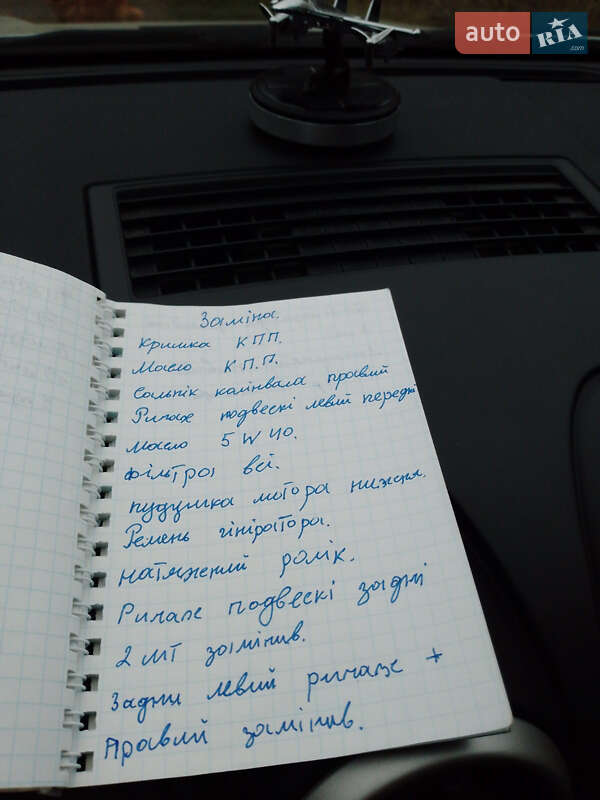 auto RIA .com
Заміна.
Кришка КПП.
Масло К П.П.
Сальнік калінвала правий
Ричаж подвескі левий передні
Масло 5 W 40.
Фільтра всі.
пудушка мотора нижня.
Ремень гініратора.
Натяжений ролік.
Ричаж подвескі задні
2 шт замінив.
Задни левий ричаж +
Правий замінив.